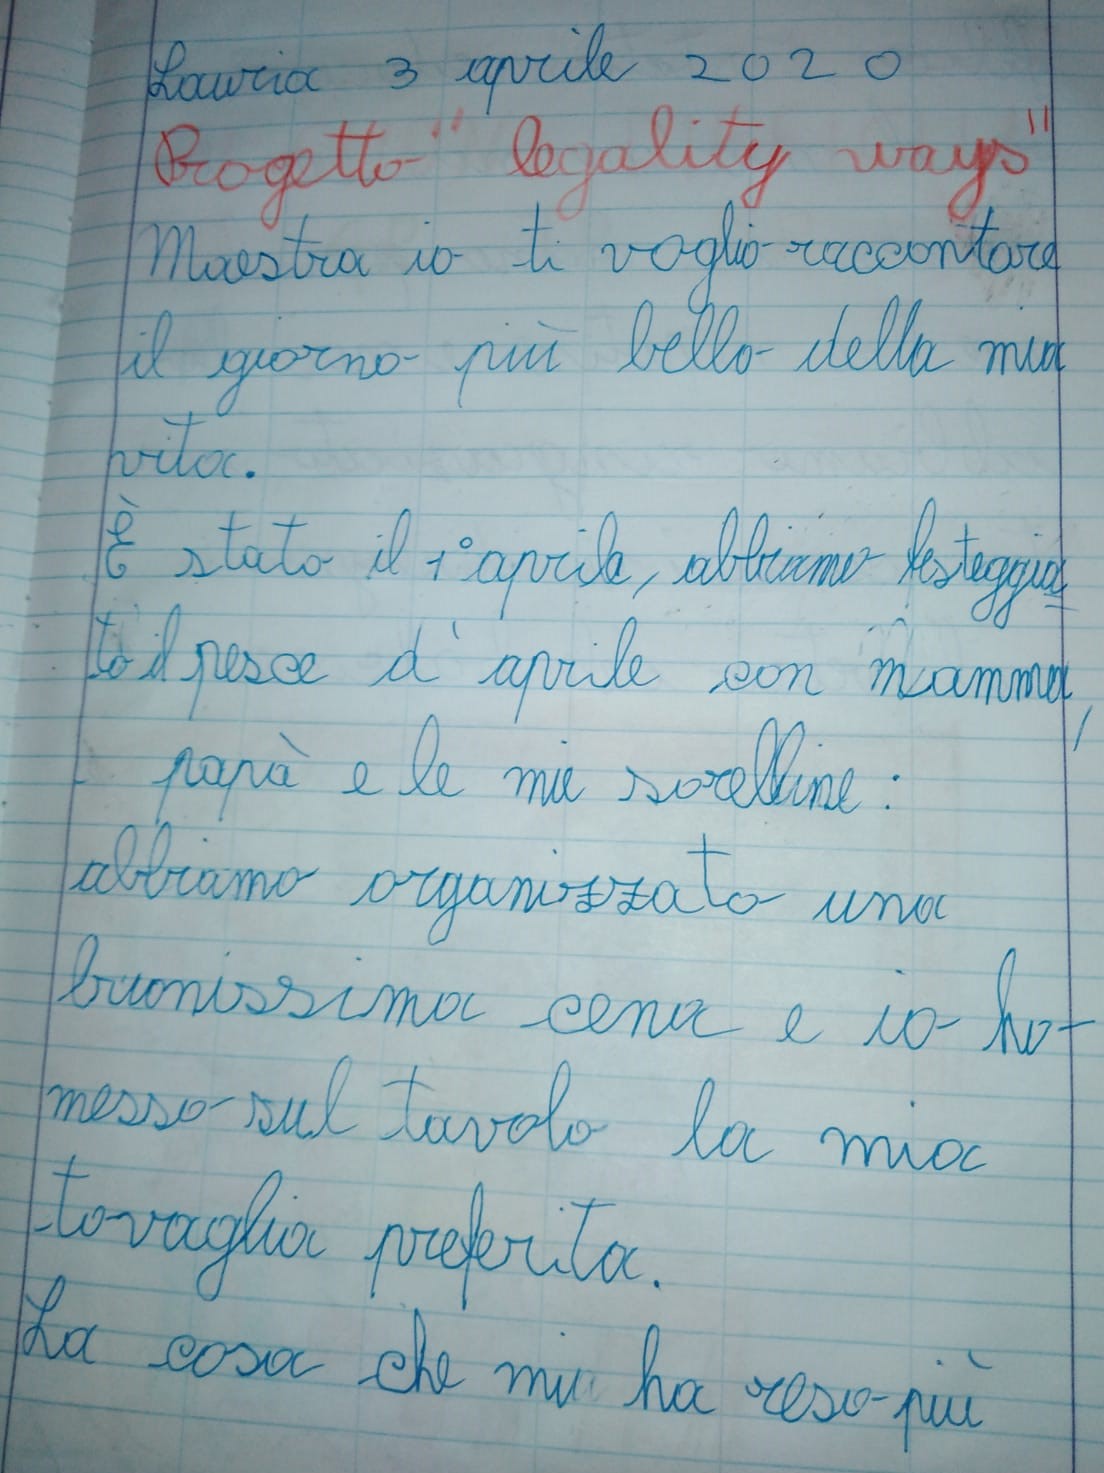 Lauria 3 aprile 2020
Progetto "legality ways"
Maestra io ti voglio raccontare
il giorno più bello della mia
vita.
È stato il 1° aprile, abbiamo festeggia
to il pesce d'aprile con mamma,
papà e le mie sorelline:
abbiamo organizzato una
buonissima cena e io ho
messo sul tavolo la mia
tovaglia preferita.
La cosa che mi ha reso più